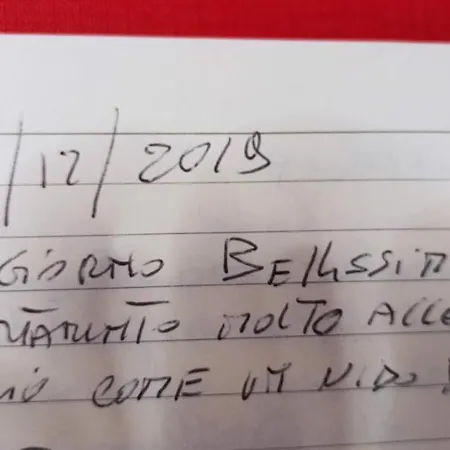 /12/2019
GIORNO BELLISSIM
TAMENTO MOLTO ACCO
IO COME UN NIDO!